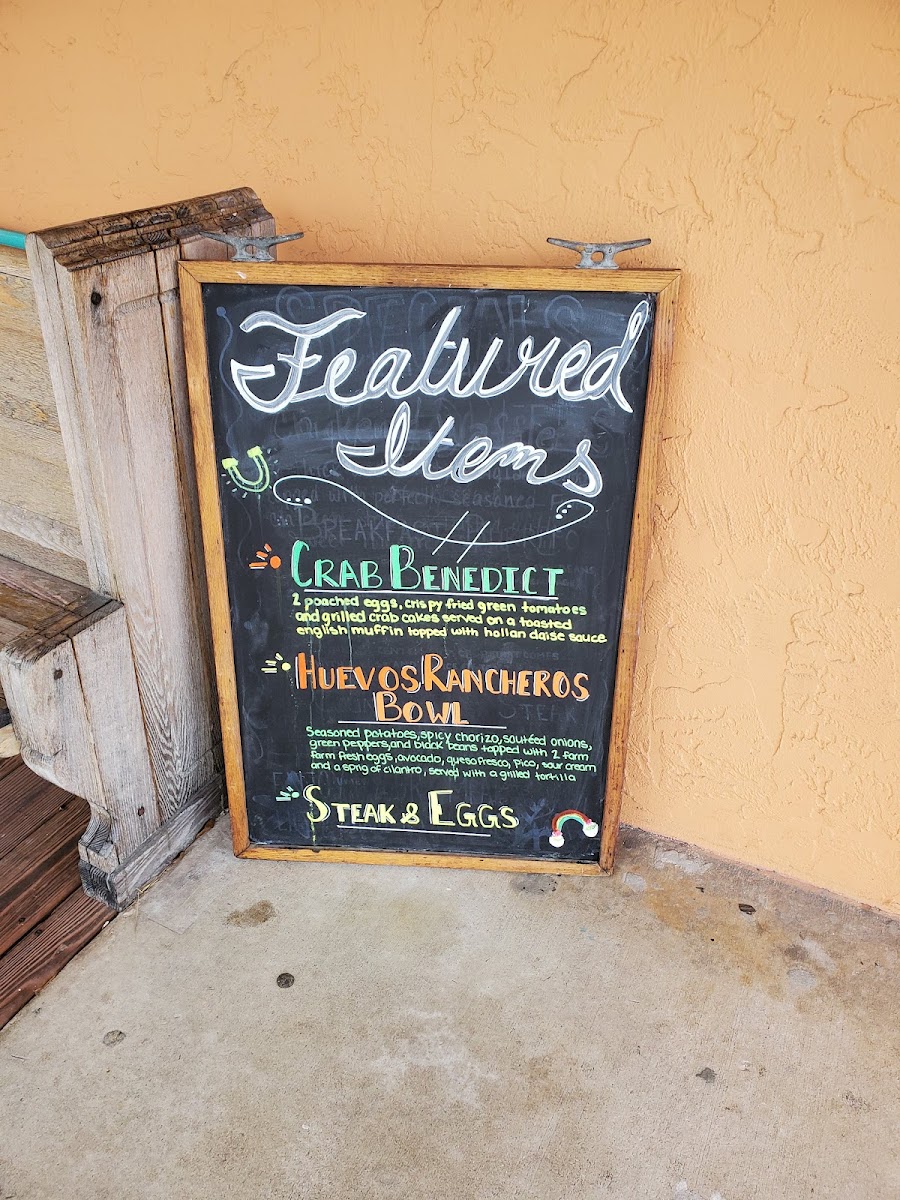 Featured
Items
CRAB BENEDICT
2 poached eggs, crispy fried green tomatoes
and grilled crab cakes served on a toasted
english muffin topped with hollandaise sauce
HUEVOS RANCHEROS
BOWL
Seasoned potatoes, spicy chorizo, sautéed onions,
green peppers, and black beans topped with 2 farm
farm fresh eggs, avocado, queso fresco, pico, sour cream
and a sprig of cilantro, served with a grilled tortilla
STEAK & EGGS